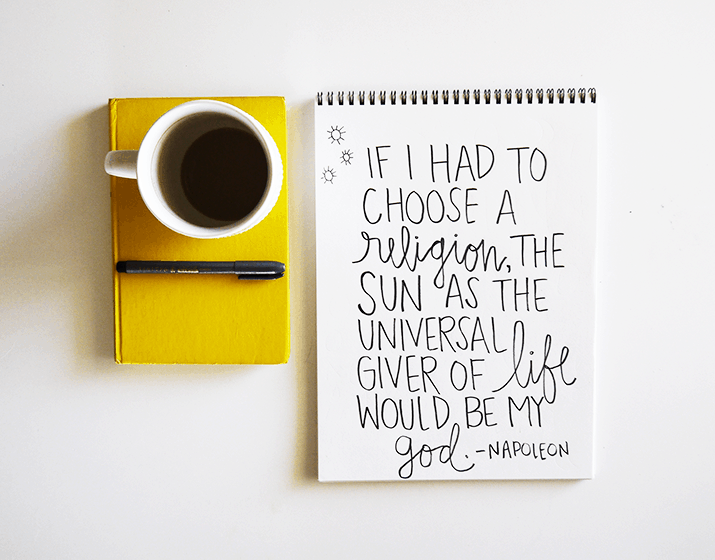 IF I HAD TO
CHOOSE A
religion, THE
SUN AS THE
UNIVERSAL
GIVER OF life
WOULD BE MY
god. -NAPOLEON